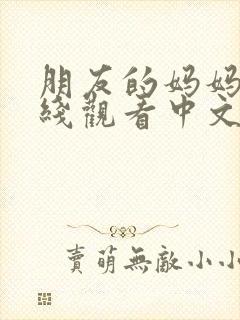 朋友的妈妈
綫觀看中文
賣萌無敵小小